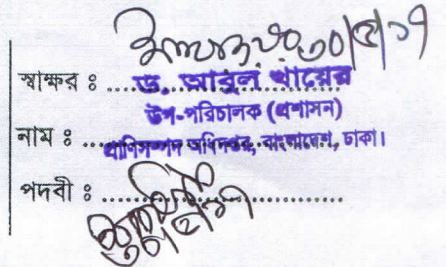 ৩০/৫/১৭
স্বাক্ষর ঃ
ড. আবুল খায়ের
উপ-পরিচালক (প্রশাসন)
নাম ঃ
প্রাণিসম্পদ অধিদপ্তর, বাংলাদেশ, ঢাকা।
পদবী ঃ